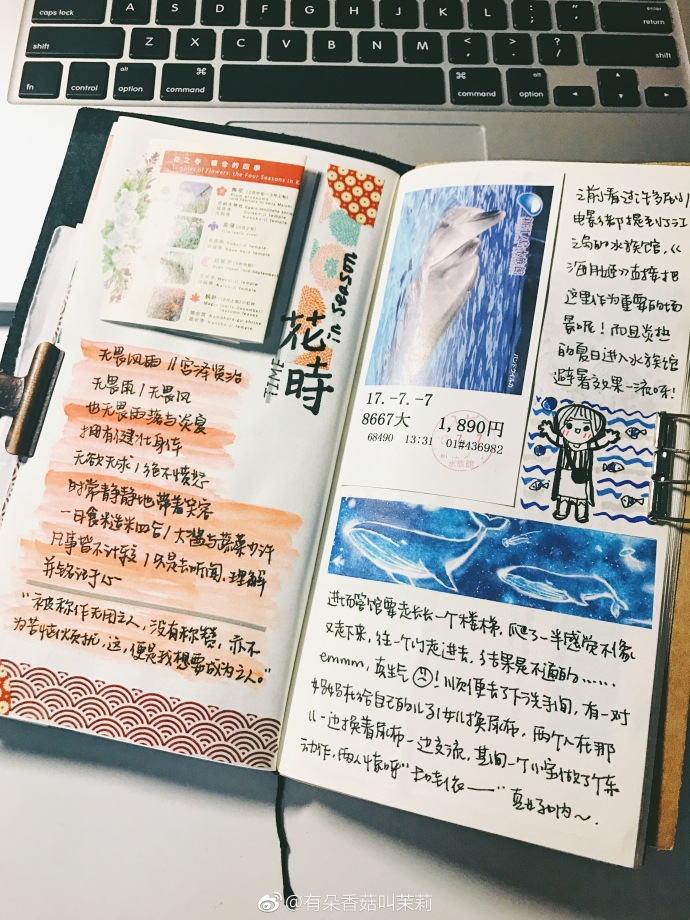 caps lock
A S D F G H J K L
: ;
" '
enter
return
shift
Z X C V B N M
< ,
> .
? /
shift
fn
control
alt
option
⌘
command
⌘
command
alt
option
花之寺·镰仓的四季
Temples of Flowers: the Four Seasons in K
花時
in season
TIME
无畏风雨 // 宫泽贤治
无畏雨 / 无畏风
也无畏雨落与炎夏
拥有健壮身体
无欲无求 / 绝不愤怒
时常静静地带着笑容
一日食糙米四合 / 大酱与蔬菜少许
凡事皆不计较 / 只是去听闻,理解
并铭记于心
“被称作无用之人,没有称赞,亦不
为苦恼烦扰,这,便是我想要成为之人。”
17.-7.-7
8667大 1,890円
68490 13:31 01#436982
水族館
之前看过许多
电影都提到了江
之岛的水族馆,《
海月姬》直接把
这里作为重要的场
景呢!而且炎热
的夏日进入水族馆
避暑效果一流呀!
进场馆要走长长一个楼梯,爬了一半感觉不像
又走下来,往一个门走进去,结果是不通的……
emmm,真生气!顺便去了下洗手间,有一对
妈妈在给自己的儿子/女儿换尿布,两个人在那
儿一边换着尿布一边交流,其间一个小宝做了个
动作,两人惊呼“
@有朵香菇叫茉莉